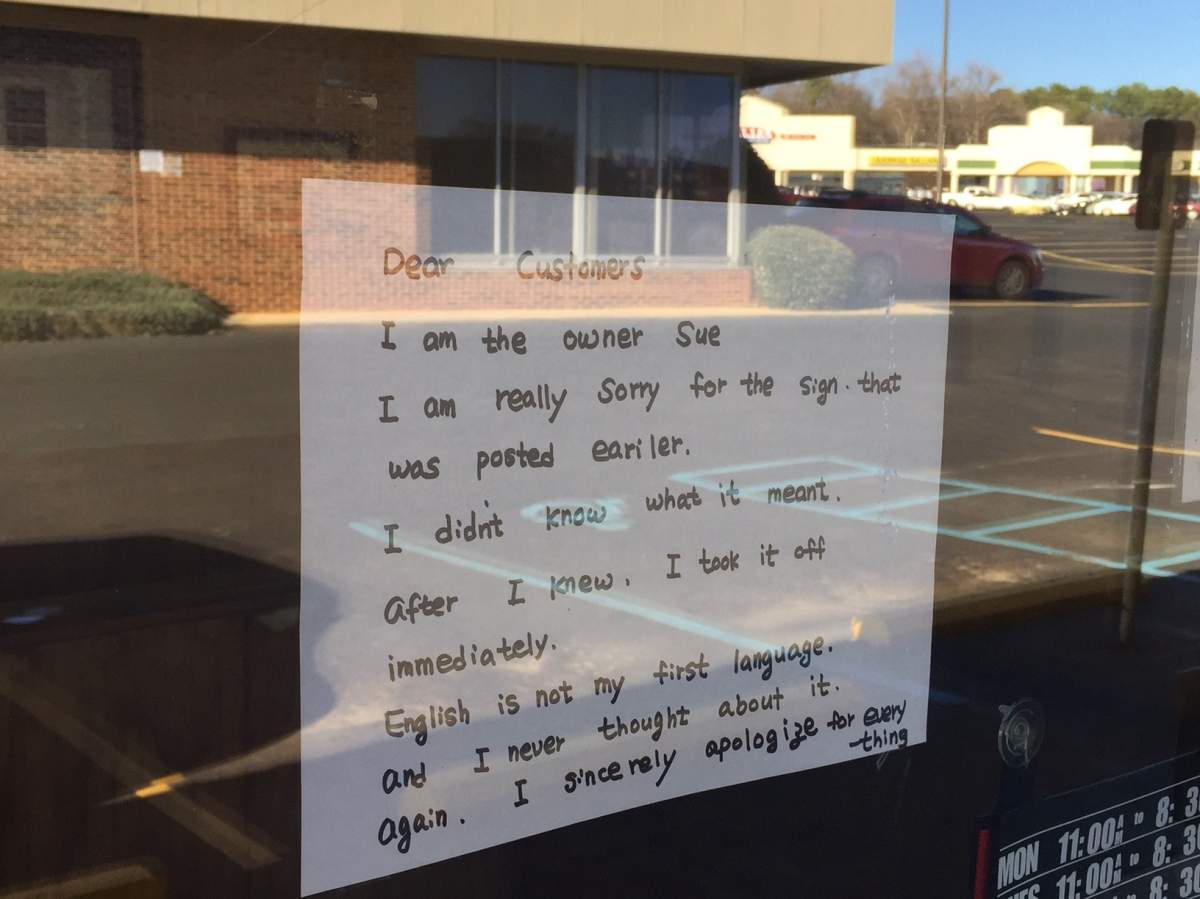 Dear Customers
I am the owner Sue
I am really sorry for the sign. that
was posted eariler.
I didn't know what it meant.
After I knew. I took it off
immediately.
English is not my first language.
and I never thought about it.
again. I sincerely apologize for every
-thing
MON 11:00AM to 8:3
11:00AM to 8:3
8:3